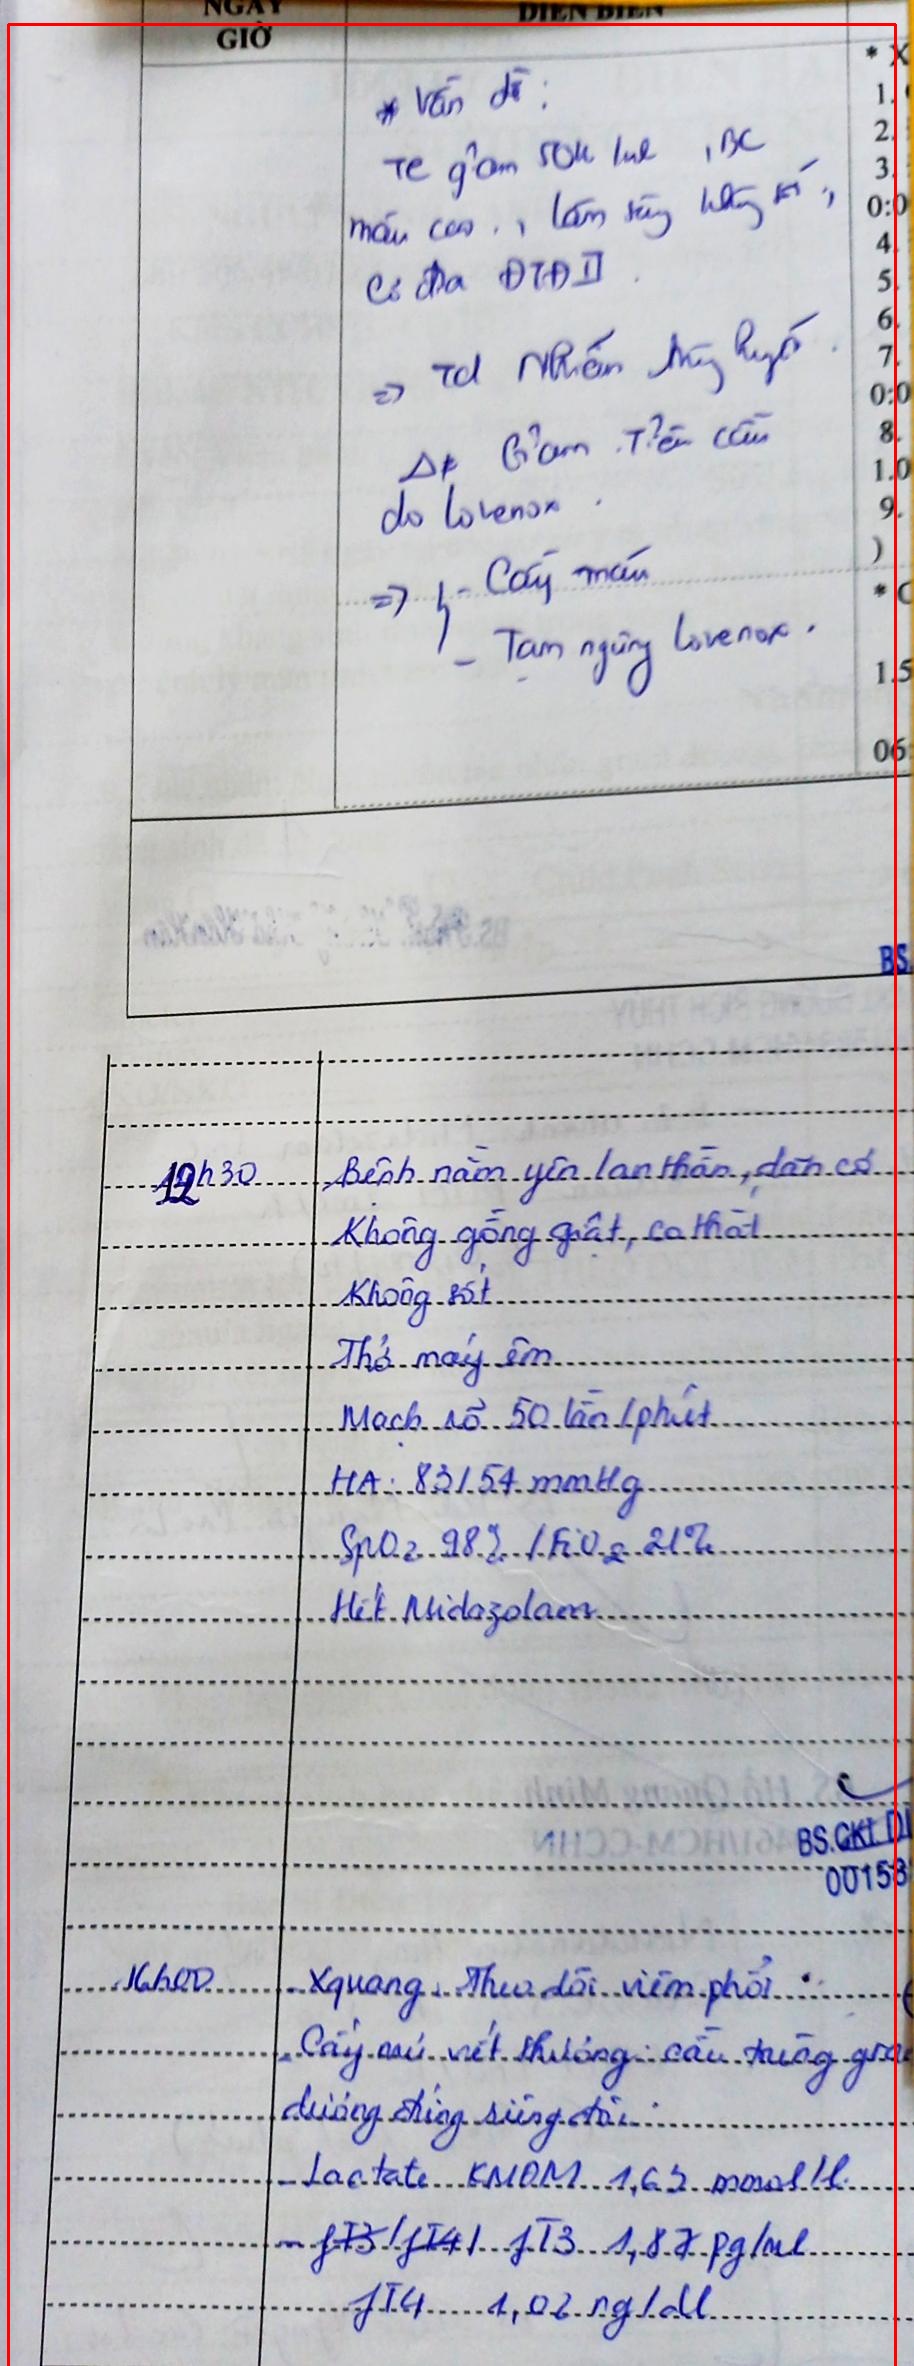 NGÀY
GIỜ
DIỄN BIẾN
* X
1.
2.
3.
0:0
4.
5.
6.
7.
0:0
8.
1.0
9.
)
* C
1.5
06
* Vấn đề:
TC giảm 50k/ul, BC
máu cao, lâm sàng không sốt,
Có địa ĐTĐ II.
=> Td Nhiễm trùng huyết.
Δ≠ Giảm Tiểu cầu
do Lovenox.
=> - Cấy máu
- Tạm ngưng Lovenox.
BS
12h30
Bệnh nằm yên, an thần, dãn cơ
Không gồng giật, co thắt
Không sốt
Thở máy êm
Mạch rõ 50 lần/phút
HA: 83/54 mmHg
SpO2 98% / FiO2 21%
Hết Midazolam
BS.CKI
00158
16h00
- Xquang: Theo dõi viêm phổi
- Cấy mủ vết thương: cầu trùng gram
dương đứng riêng đôi.
- Lactate KMĐM 1,63 mmol/l.
- fT3/fT4/ fT3 1,87 pg/ml
fT4 1,02 ng/dl